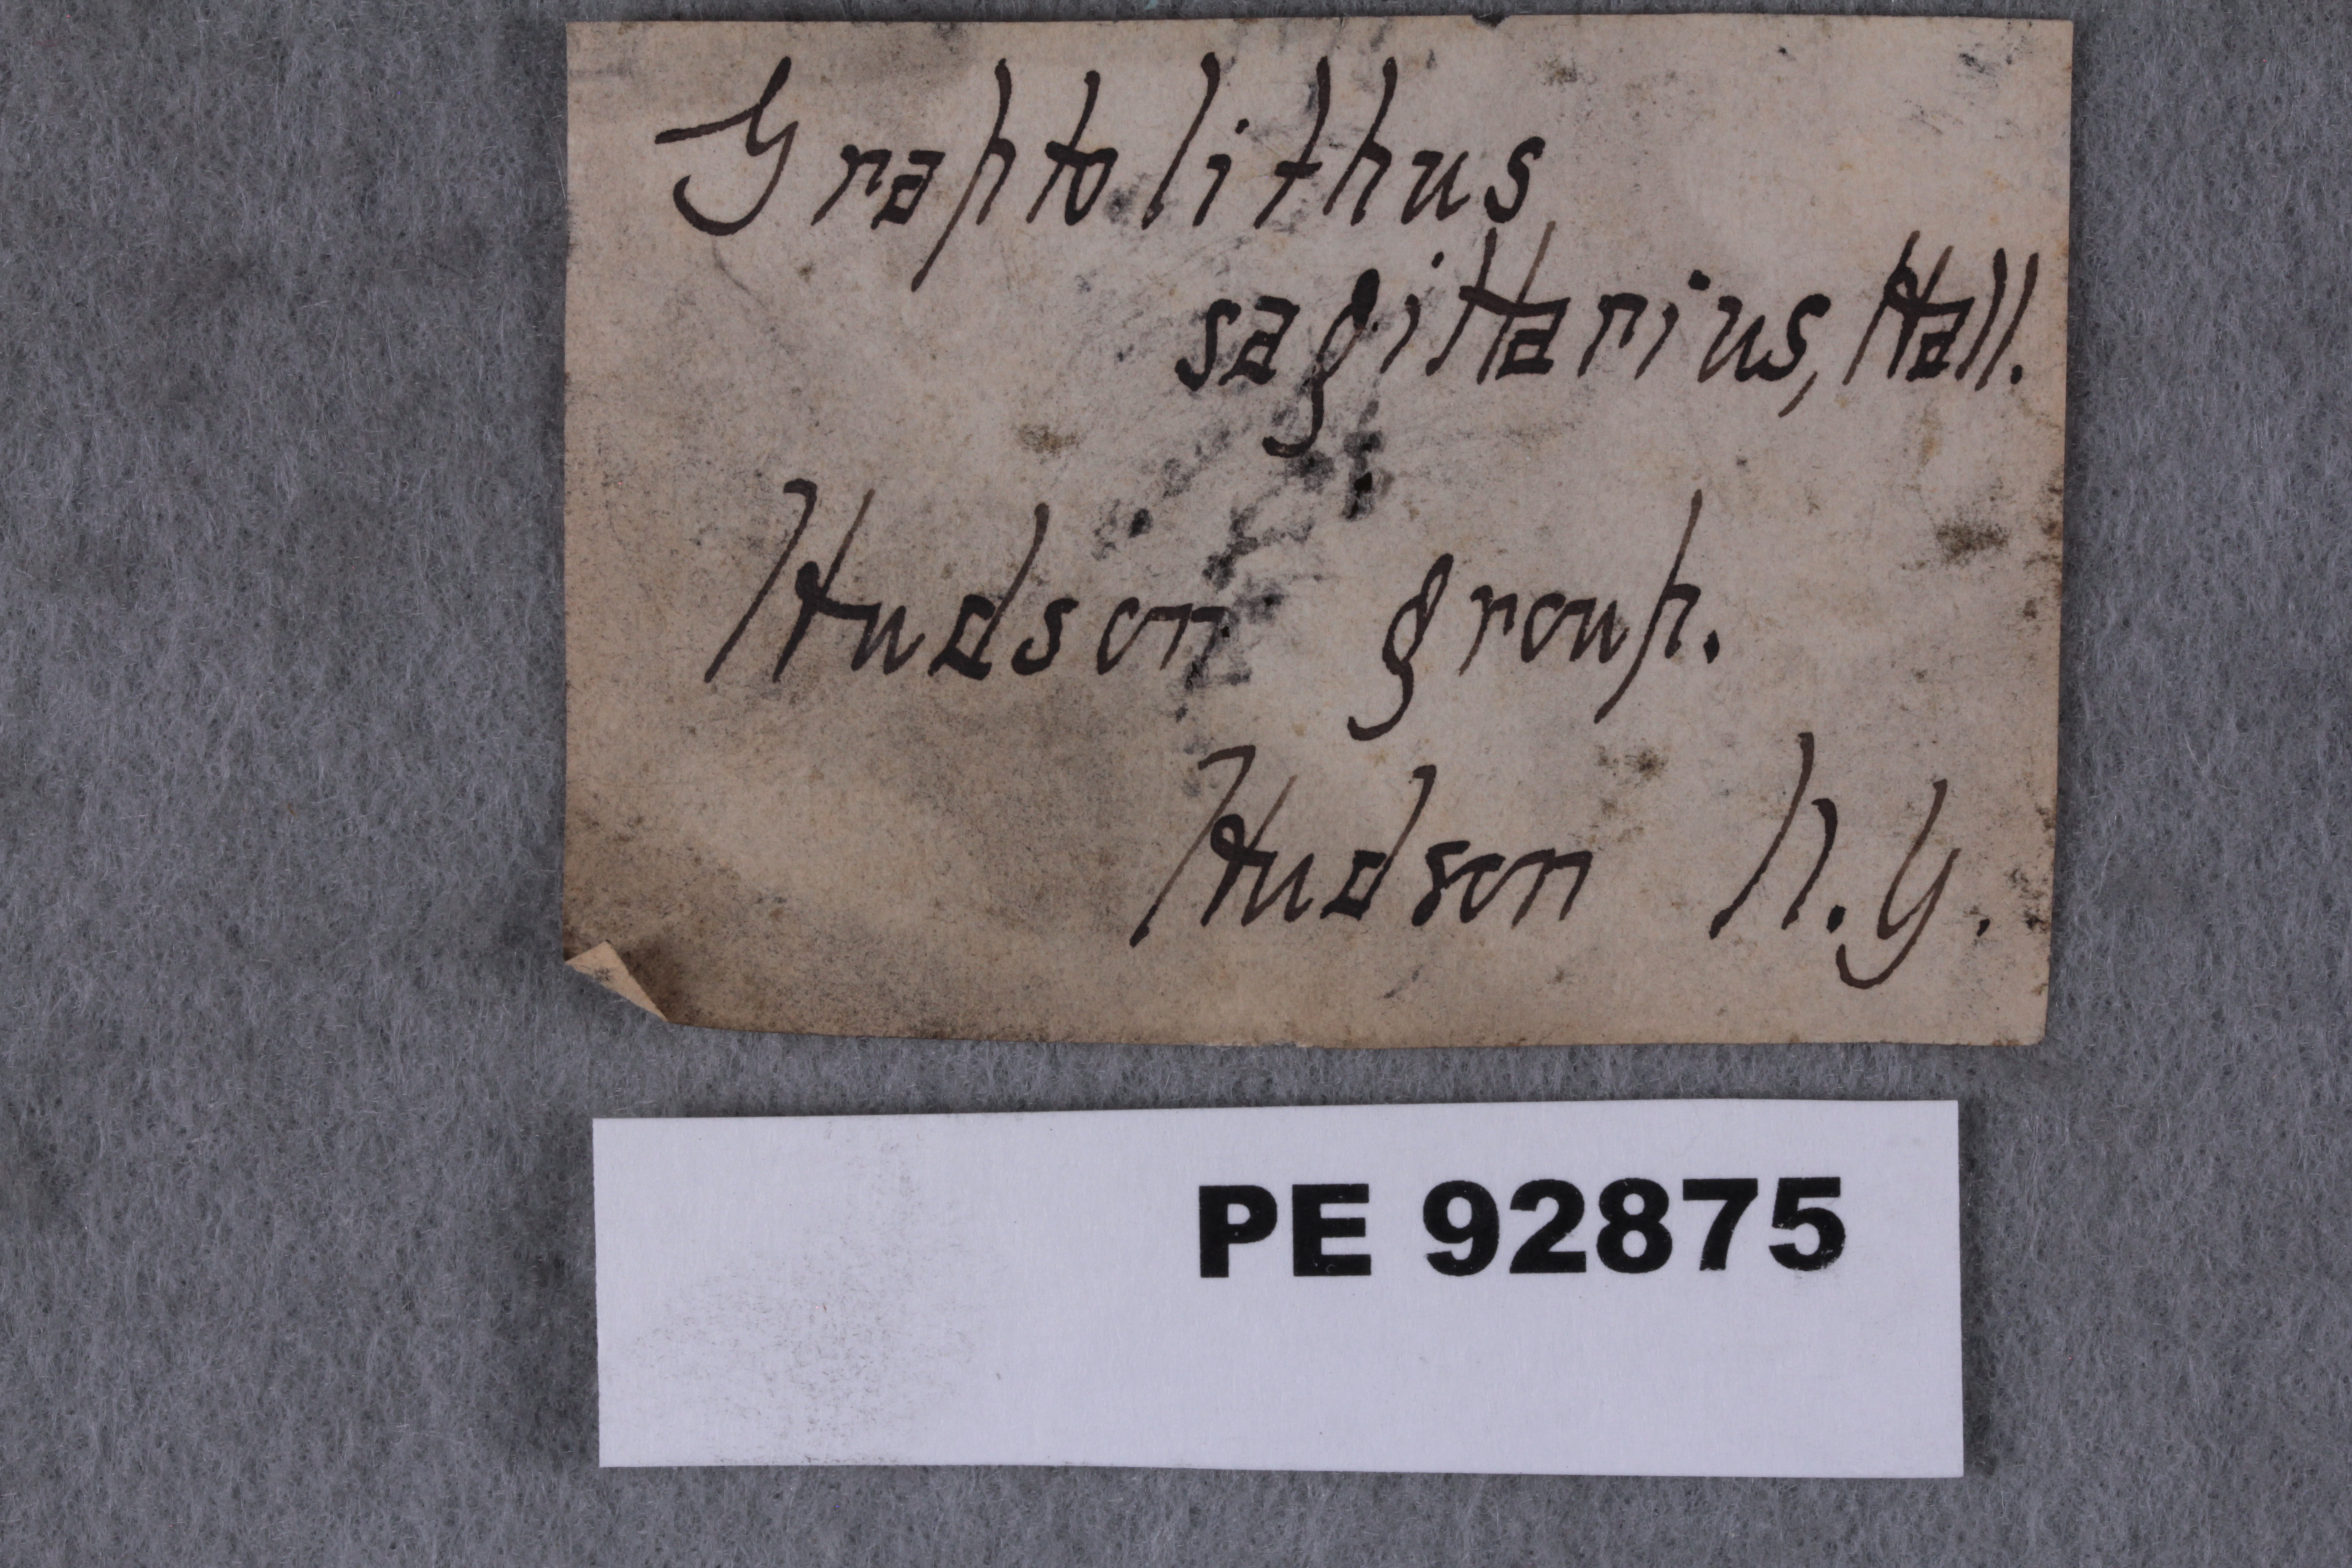 Graptolithus
sagittarius, Hall.
Hudson group.
Hudson N.Y.
PE 92875